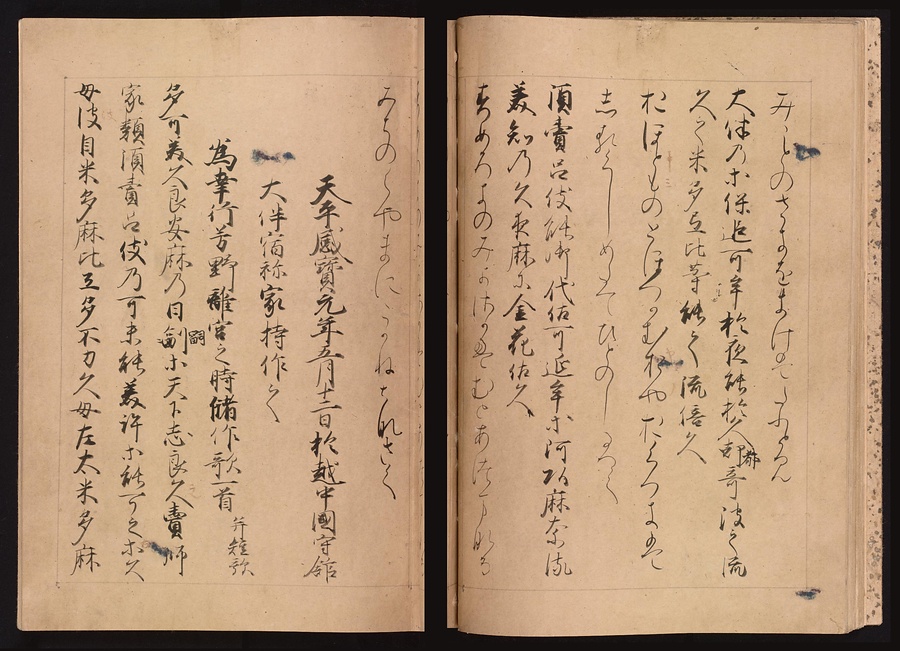 みことのさきをきけはたふとみ
大伴乃等保追可牟於夜能於久都奇波之流
久之米多弖比等能之流倍久
おほとものとほつかむおやのおくつきは
しるくしめたてひとのしるへく
須賣呂伎能御代佐可延牟等阿頭麻奈流
美知乃久夜麻尓金花佐久
すめろきのみよさかえむとあつまなる
みちのくやまにこかねはなさく
天平感寶元年五月十二日於越中國守舘
大伴宿祢家持作之
爲幸行芳野離宮之時儲作歌一首 并短歌
多可美久良安麻乃日嗣等天下志良之賣師
家類須賣呂伎乃可未能美許等能可之古久
母波自米多麻比弖多不刀久母左太米多麻